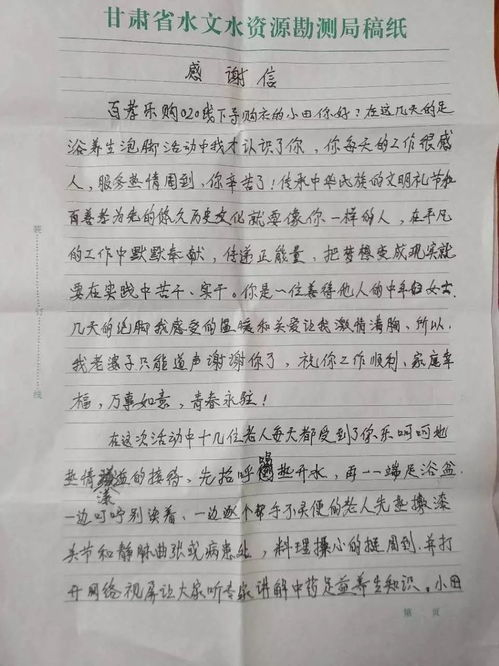 甘肃省水文水资源勘测局稿纸
感谢信
百孝乐购020线下导购衣的小田你好？在这几天的足
浴养生泡脚活动中我才认识了你，你每天的工作很感
人，服务热情周到，你辛苦了！传承中华民族的文明礼节和
百善孝为先的悠久历史文化就要像你一样的人，在平凡
的工作中默默奉献，传递正能量，把梦想变成现实就
要在实践中苦干、实干。你是一位善待他人的中年妇女士
几天的泡脚我感受的温暖和关爱让我激情满胸、所以，
我老婆子只能道声谢谢你了，祝你工作顺利、家庭幸
福，万事如意，青春永驻！
在这次活动中十几位老人每天都受到了你乐呵呵地
热情洋溢的接待，先招呼喝热开水，再一一端足浴盆
一边叮咛别误着、一边逐个帮手不灵便的老人先热擦漆
关节和静脉曲张或病患处，料理操心的挺周到，并打
开网络视屏让大家听专家讲解中药足益养生知识。小田
装
订
线
第 页